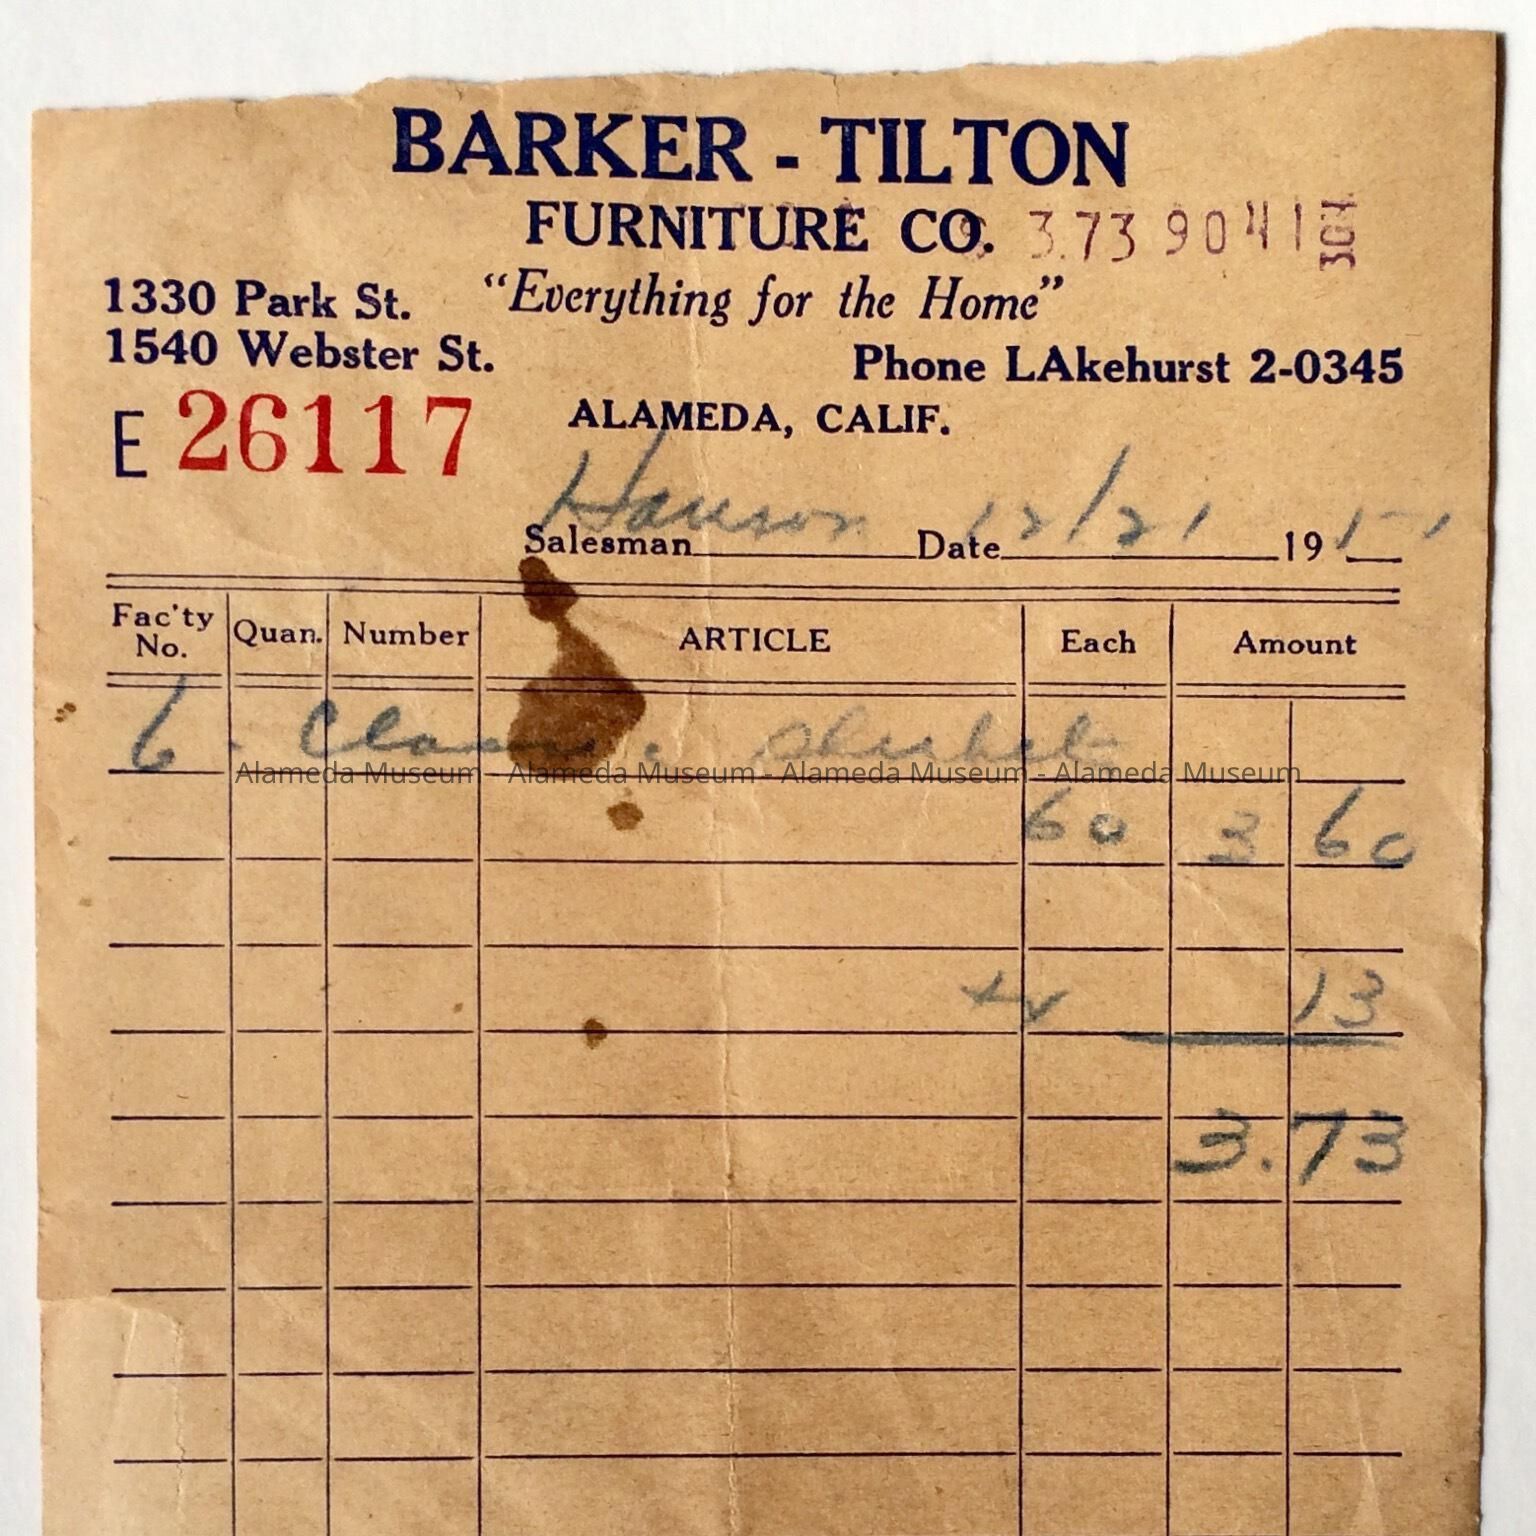 BARKER - TILTON
FURNITURE CO. 3.73 9041
1330 Park St. "Everything for the Home"
1540 Webster St. Phone LAkehurst 2-0345
E 26117 ALAMEDA, CALIF.
Salesman Hanson Date 12/21 1951
Fac'ty No. Quan. Number ARTICLE Each Amount
6 - sherbet
Alameda Museum - Alameda Museum - Alameda Museum - Alameda Museum
60 3 60
tx 13
3.73